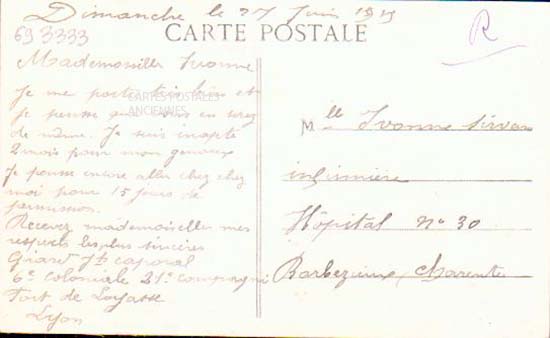 Dimanche le 27 Juin 1915
CARTE POSTALE
693333
R
Mademoiselle Ivonne
Je me porte très bien et
CARTES POSTALES
ANCIENNES
je pense que vous en serez
de même. Je suis inapte
2 mois pour mon genoux
Je pense encore aller chez chez
moi pour 15 jours de
permission.
Recevez mademoiselle mes
respects les plus sincères
Girard Jh caporal
6e coloniale 21e compagnie
Fort de Loyasse
Lyon
Mlle Ivonne
infirmière
Hôpital no 30
Barbezieux Charente